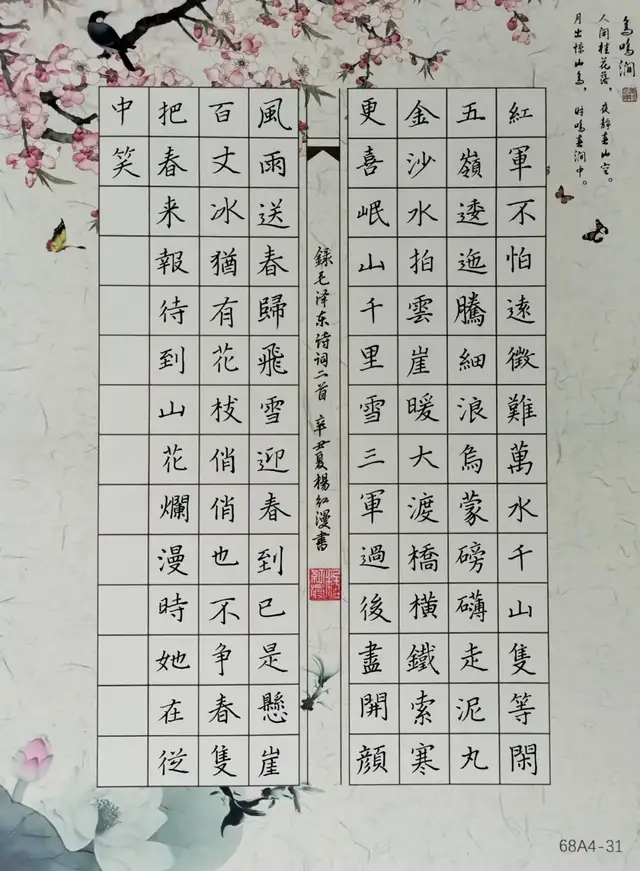 鸟鸣涧
人闲桂花落，夜静春山空。
月出惊山鸟，时鸣春涧中。
紅軍不怕遠徵難萬水千山隻等閑
五嶺逶迤騰細浪烏蒙磅礴走泥丸
金沙水拍雲崖暖大渡橋橫鐵索寒
更喜岷山千里雪三軍過後盡開顔
録毛泽东诗词二首 辛丑夏楊红漫書
風雨送春歸飛雪迎春到已是懸崖
百丈冰猶有花枝俏俏也不争春隻
把春来報待到山花爛漫時她在從
中笑
68A4-31